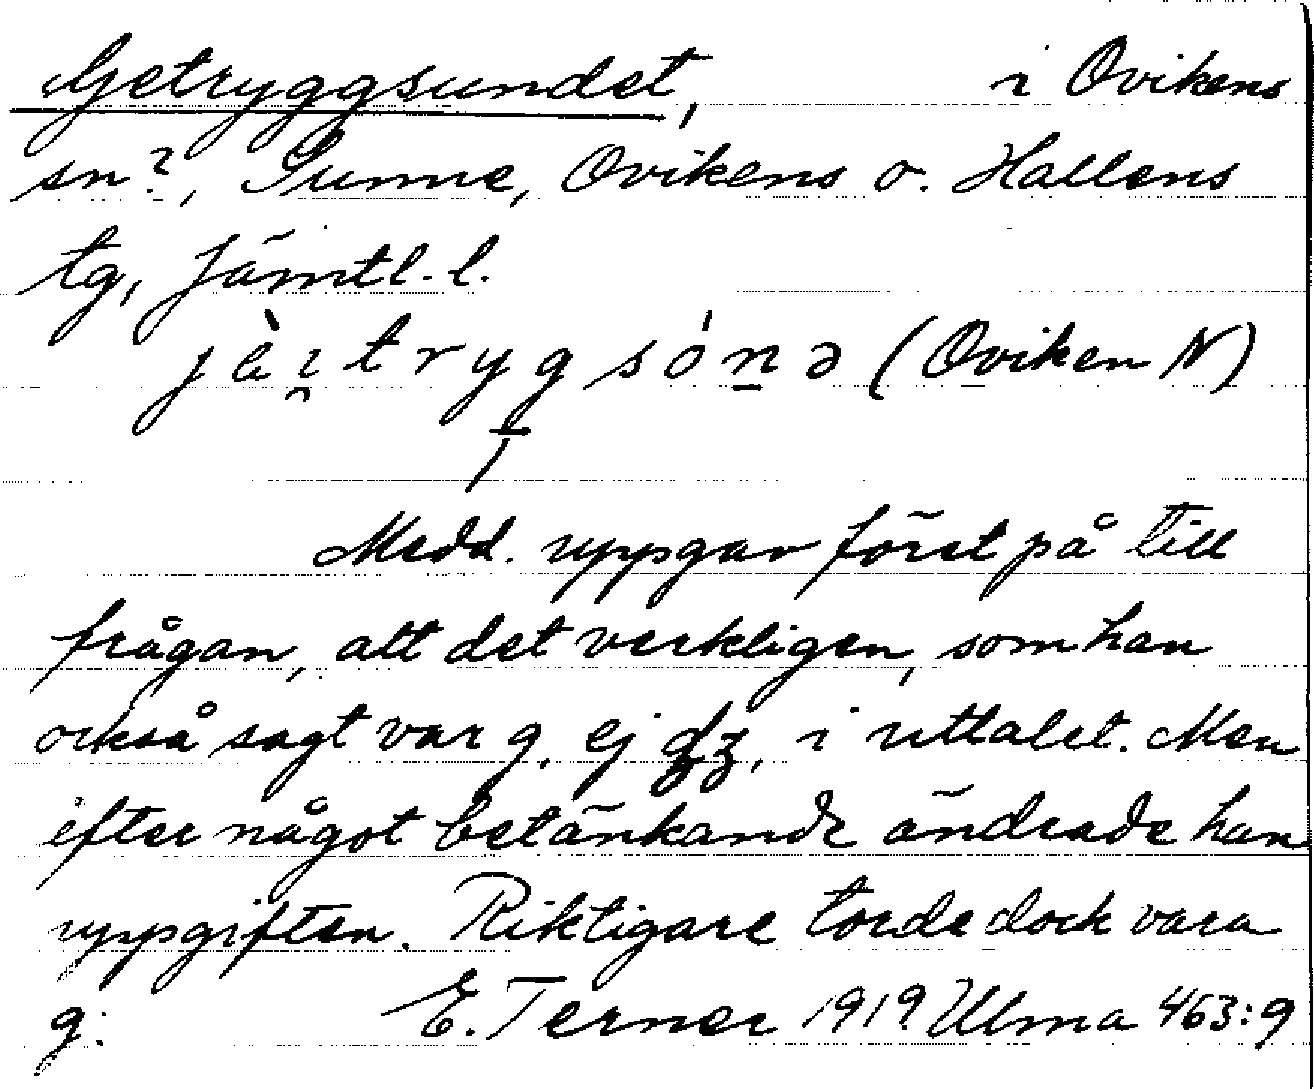 Getryggsundet, i Ovikens
sn?, Sunne, Ovikens o. Hallens
tg, Jämtl. l.
jèı̯trygsón̠ə (Oviken N)
Medd. uppgav först på till
frågan, att det verkligen, som han
också sagt var g, ej dʒ, i uttalet. Men
efter något betänkande ändrade han
uppgiften. Riktigare torde dock vara
g. E. Terner 1919 Ulma 463:9